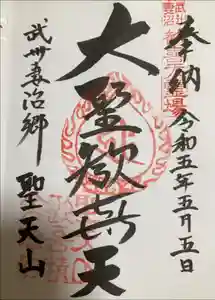 奉納
令和五年五月五日
大聖歓喜天
武州妻沼郷
聖天山